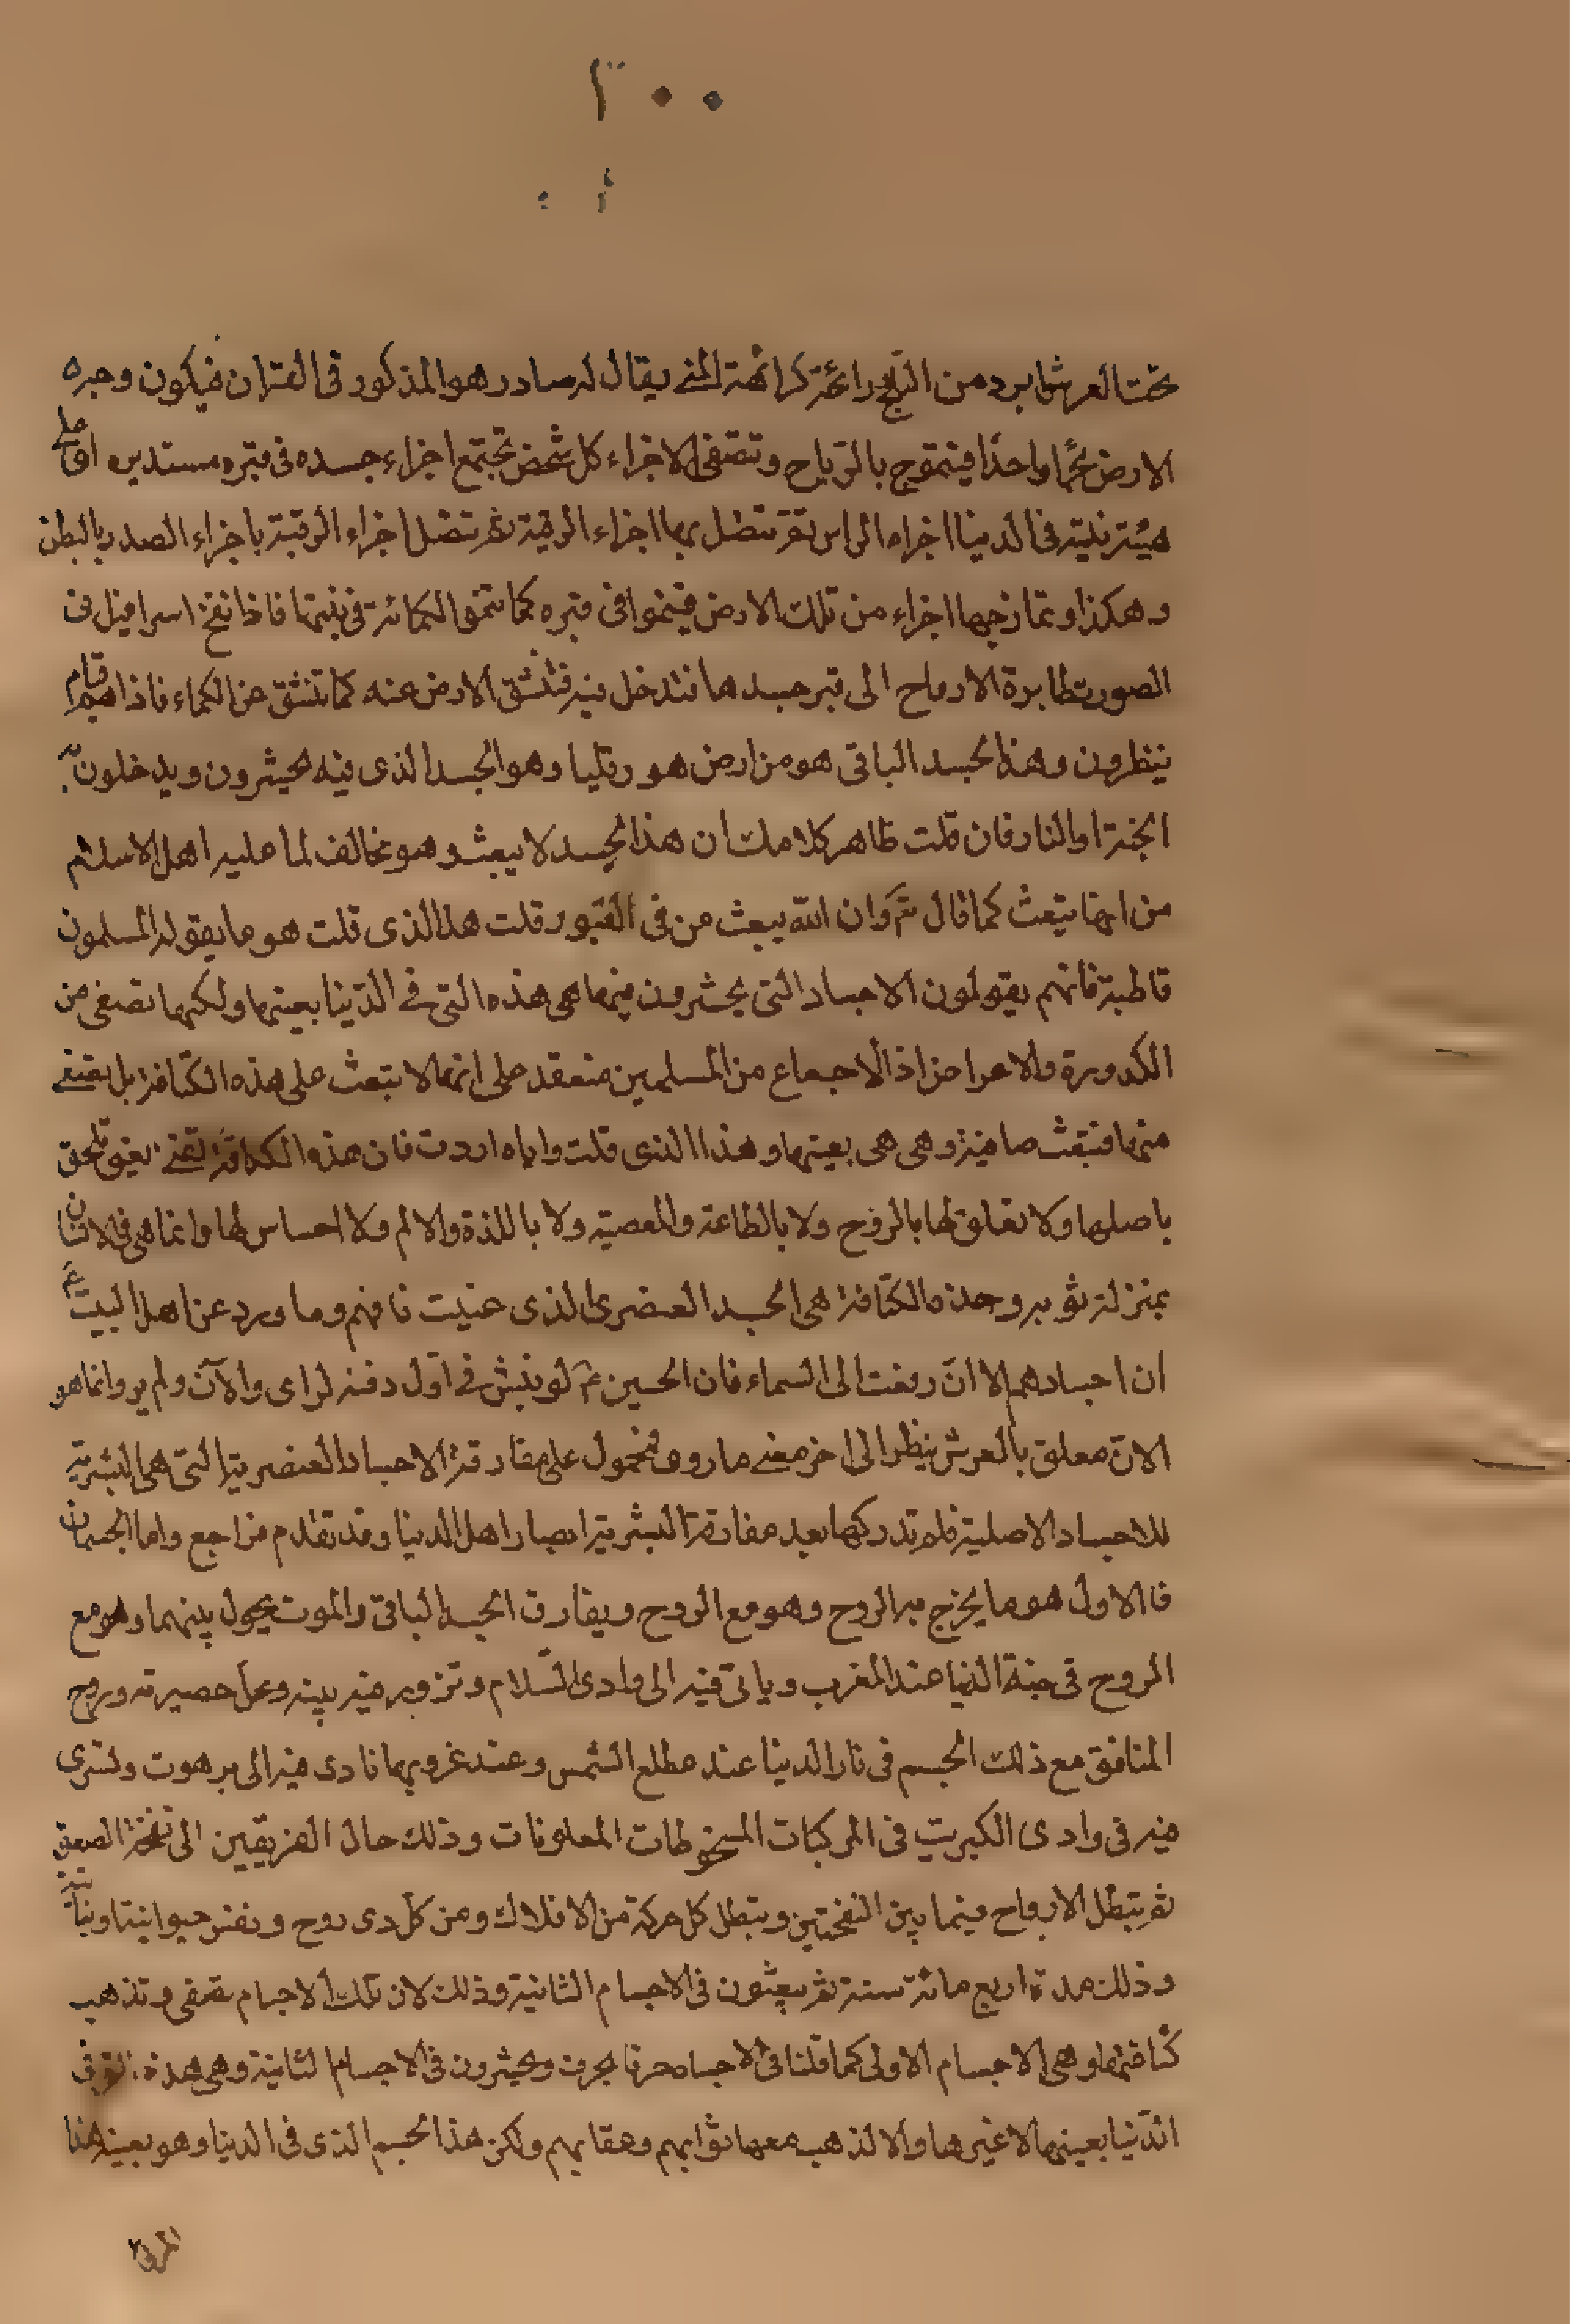 تحت العرش ابرد من الثلج رائحته كرائحة المنى يقال له صاد وهو المذكور فى القران فيكون وجه
الارض بحرا واحدا فيتموج بالرياح وتتصفى الاجزاء كل شخص تجتمع اجزاء جسده فى قبره مستديره اى على
هيئة بنيته فى الدنيا اجزاء الراس ثم تتصل بها اجزاء الرقبة ثم تتصل اجزاء الرقبة باجزاء الصدر بالبطن
وهكذا وتمازجها اجزاء من تلك الارض فينموا فى قبره كما تنموا الكمائة فى نبتها فاذا نفخ اسرافيل فى
الصور تطايرة الارواح الى قبر جسدها فتدخل فيه فتنشق الارض عنه كما تنشق عن الكماء فاذا هم قيام
ينظرون وهذا الجسد الباقى هو من ارض هورقليا وهو الجسد الذى فيه يحشرون ويدخلون به
الجنة او النار فان قلت ظاهر كلامك ان هذا الجسد لا يبعث وهو مخالف لما عليه اهل الاسلام
من انها تبعث كما قال تع وان الله يبعث من فى القبور قلت هذا الذى قلت هو ما يقوله المسلمون
قاطبة فانهم يقولون الاجساد التى يحشرون فيها هى هذه التى فى الدنيا بعينها ولكنها تصفى من
الكدورة والاعراض اذ الاجماع من المسلمين منعقد على انها لا تبعث على هذه الكثافة بل تصفى
منها فتبعث صافية وهى هى بعينها وهذا الذى قلت واياه اردت فان هذه الكثافة تفنى يعنى تلحق
باصلها ولا تعلق لها بالروح ولا بالطاعة والمعصية ولا باللذة والالم ولا احساس لها وانما هى فى الانسان
بمنزلة ثوبه وهذه الكثافة هى الجسد العنصرى الذى عنيت فافهم وما ورد عن اهل البيت ع
ان اجسادهم الان رفعت الى السماء فان الحسين ع لو نبش فى اول دفنه لراى والآن لم ير وانما هو
الان معلق بالعرش ينظر الى اخر معنى ما روى فمحمول على مفارقة الاجساد العنصرية التى هى البشرية
للاجساد الاصلية فلم تدركها بعد مفارقة البشرية ابصار اهل الدنيا وقد تقدم فراجع واما الجسمان
فالاول هو ما يخرج به الروح وهو مع الروح ويفارق الجسد الباقى والموت يحول بينهما وهو مع
الروح فى جنة الدنيا عند المغرب وياتى فيه الى وادى السلام وتزور فيه بيته ومحل حضيرته وروح
المنافق مع ذلك الجسم فى نار الدنيا عند مطلع الشمس وعند غروبها تاوى فيه الى برهوت وتسرى
فيه فى وادى الكبريت فى المركبات المسخوطات الملعونات وذلك حال الفريقين الى نفخة الصعق
ثم تبطل الارواح فيما بين النفختين وتبطل كل حركة من الافلاك ومن كل ذى روح ونفس حيوانية او نباتية
وذلك مدة اربع مائة سنة ثم يبعثون فى الاجسام الثانية وذلك لان تلك الاجسام تصفى وتذهب
كثافتها وهى الاجسام الاولى كما قلنا فى الاجساد حرفا بحرف ويحشرون فى الاجسام الثانية وهى هذه التى فى
الدنيا بعينها لا غيرها والا لذهب معها ثوابهم وعقابهم ولكن هذا الجسم الذى فى الدنيا وهو بعينه هذا
المرئى